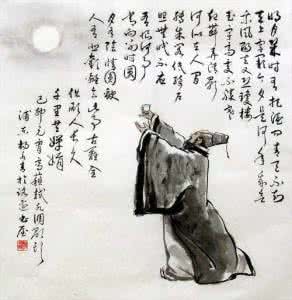 明月幾時有把酒問青天不知
天上宮闕今夕是何年我欲
乘風歸去又恐瓊樓
玉宇高處不勝寒
起舞弄清影
何似在人間
轉朱閣低綺戶
照無眠不應
有恨何事
長向別時圓
月有陰晴圓缺
人有悲歡離合此事古難全
但願人長久
千里共嬋娟
己卯元宵蘇軾水調歌頭
浦東楊於書屋